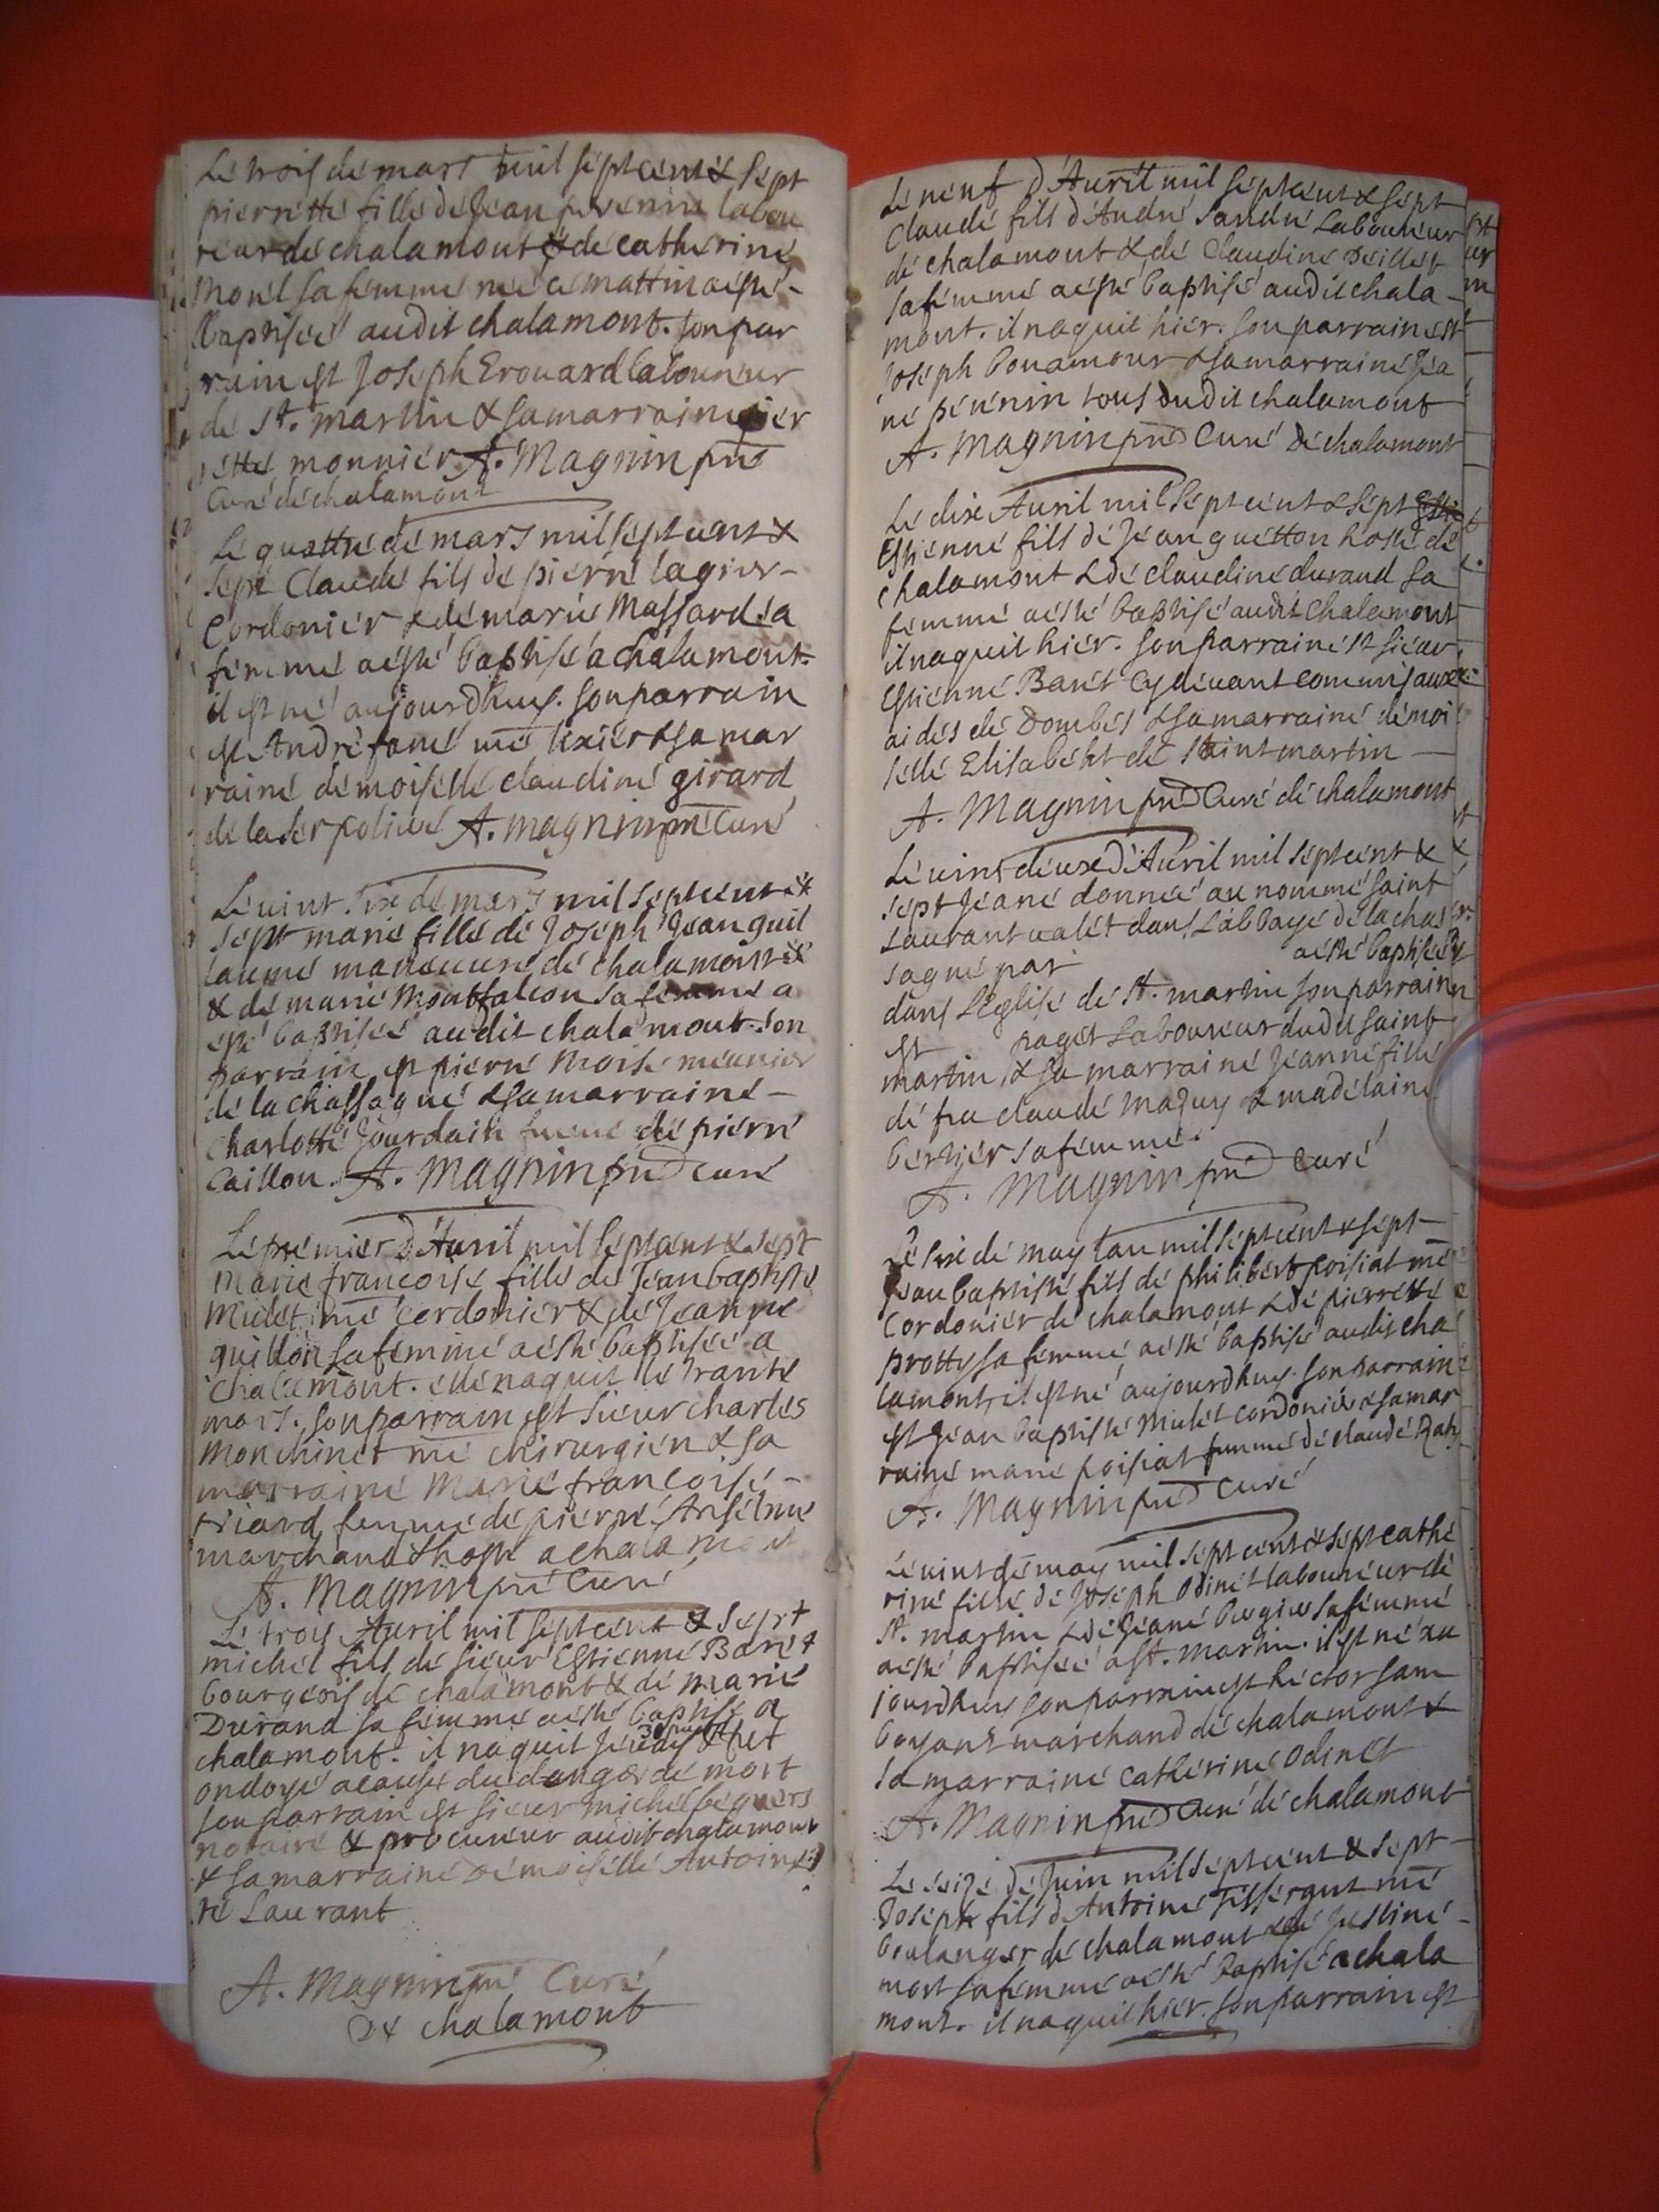 Le trois de mars mil sept cent & sept
pierrette fille de Jean pevenin labou
reur de chalamont & de catherine
Morel sa femme née ce mattin a esté -
baptisée audit chalamont. son par
rain est Joseph Erouard laboureur
de St. martin & sa marraine pier
rette monnier A. Magnin pre
Curé de chalamont
Le quattre de mars mil sept cent &
sept Claude fils de pierre lagier -
Cordonier & de marie Massard sa
femme a esté baptisé a chalamont.
il est né aujourdhuy. son parrain
est André fané me tixier & sa mar
raine demoiselle claudine girard
de la Serpolière A. magnin pre Curé
Le vint six de mars mil sept cent &
sept marie fille de Joseph Jean guil
laume maneuvre de chalamont &
& de marie Montfalcon sa femme a
esté baptisée audit chalamont. son
parrain est pierre Moise meunier
de la chassagne & sa marraine -
Charlotte Jourdain femme de pierre
Caillou. A. Magnin pre curé
Le premier d'Avril mil sept cent & sept
Marie francoise fille de Jean baptiste
Mulet me cordonier & de Jeanne
guillon sa femme a esté baptisée a
Chalamont. elle naquit le trante
mars. son parrain est sieur charles
Monchinet me chirurgien & sa
marraine Marie francoise -
triard femme de pierre Anselme
marchand & hoste a chalamont
A. Magnin pre Curé
Le trois Avril mil sept cent & sept
michel fils de sieur Estienne Baret
bourgeois de chalamont & de marie
Durand sa femme a esté baptisé a
chalamont. il naquit & fut
ondoyé a cause du danger de mort
son parrain est sieur michel
notaire & procureur audit chalamont
& sa marraine demoiselle Antoinet
te Laurant
A. Magnin pre Curé
De chalamont
Le neuf d'Avril mil sept cent & sept
Claude fils d'André Landré Laboureur
de chalamont & de Claudine Peillet
sa femme a esté baptisé audit chala -
mont. il naquit hier. son parrain est
Joseph bonamour & sa marraine Jea
ne pévenin tous dudit chalamont
A. Magnin pre Curé De chalamont
Le dix Avril mil sept cent & sept
Estienne fils de Jean guetton hoste de
chalamont & de claudine durand sa
femme a esté baptisé audit chalamont
il naquit hier. son parrain est sieur
Estienne Baret cy devant comis aux
aides de Dombes & sa marraine demoi
selle Elisabeht de Saint martin -
A. Magnin pre Curé de chalamont
Le vint deux d'Avril mil sept cent &
sept Jeane donnée au nommé saint
Laurant valet dans L'abbaye de la chas
sagne par a esté baptisée
dans L'Eglise de St. martin son parrain
est paget Laboureur dudit saint
martin, & sa marraine Jeanne fille
de feu claude Maguy & madelaine
bertier sa femme.
A. Magnin pre Curé
Le six de may l'an mil sept cent & sept -
Jean baptiste fils de philibert poisiat me
Cordonier de chalamont & de pierrette
protty sa femme, a esté baptisé audit cha
lamont, il est né aujourdhuy. son parrain
est Jean baptiste Mulet cordonier & sa mar
raine marie poisiat femme de claude Raty
A. Magnin pre Curé
Le vint de may mil sept cent & sept cathe
rine fille de Joseph Odinet laboureur de
St. martin & de Jeane sa femme
a esté baptisée a St. martin. il est né au
jourdhuy son parrain est hector sam
boyant marchand de chalamont &
sa marraine catherine Odinet
A. Magnin pre Curé de chalamont
Le seize de Juin mil sept cent & sept -
Joseph fils d'Antoine Tissergut me
boulanger de chalamont & de Justine -
mort sa femme a esté baptisé a chala
mont. il naquit hier. son parrain est